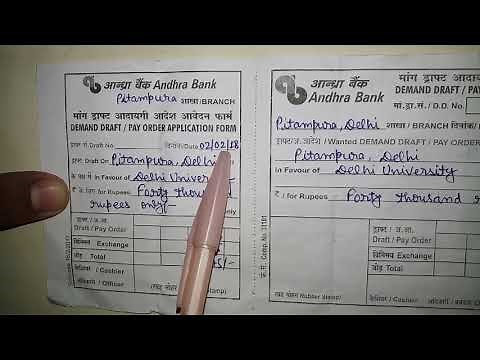 आन्ध्रा बैंक Andhra Bank
Pitampura शाखा/BRANCH
मांग ड्राफ्ट आदायगी आदेश आवेदन फार्म
DEMAND DRAFT / PAY ORDER APPLICATION FORM
Draft No. दिनांक/Date 02/02/18
Draft On Pitampura, Delhi
Delhi University
for Rupees Forty thousand
rupees only/-
Draft / Pay Order
विनिमय Exchange
जोड़ Total
Cashier
Officer
आन्ध्रा बैंक
Andhra Bank
मांग ड्राफ्ट आदाय
DEMAND DRAFT / PAY
मां.ड्रा.सं./D.D. No.
Pitampura, Delhi शाखा/BRANCH दिनांक/
Wanted DEMAND DRAFT / PAY OR
Pitampura, Delhi
in Favour of Delhi University
for Rupees Forty thousand
Draft / Pay Order
विनिमय Exchange
जोड़ Total
Cashier
Rubber Stamp